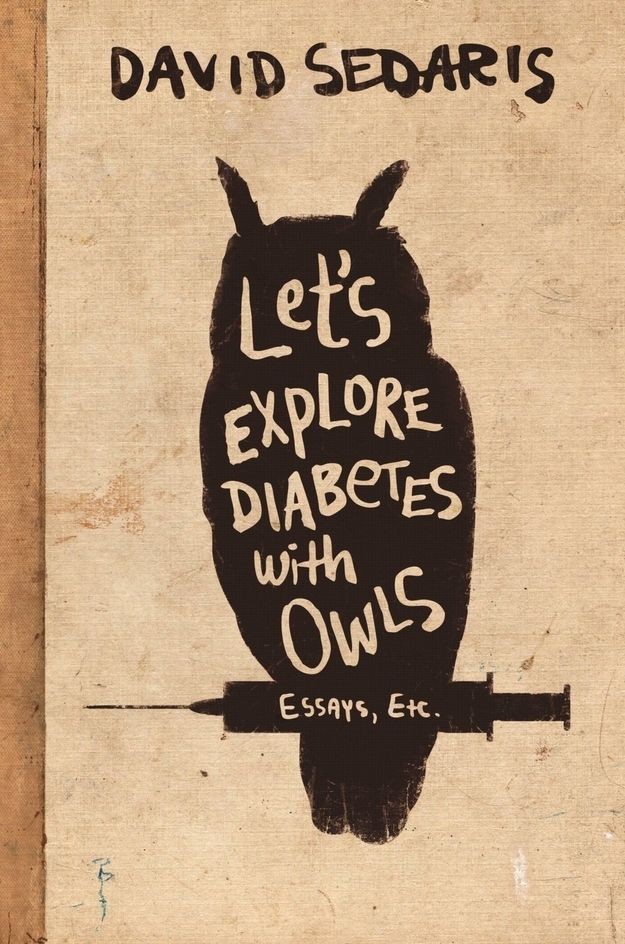 DAVID SEDARIS
Let's
EXPLORE
DIABeTES
with
OWLS
ESSAYS, Etc.